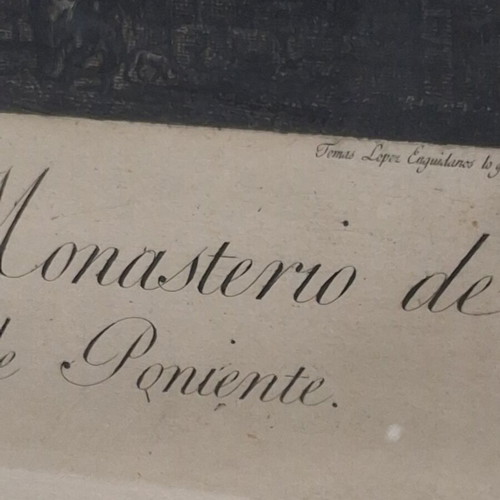 Tomas Lopez Enguidanos lo g
Monasterio de
de Poniente.